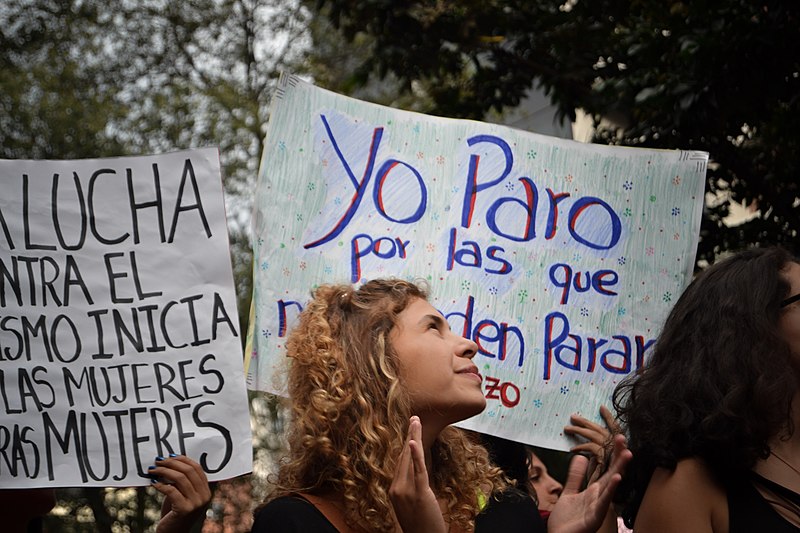 A LUCHA
NTRA EL
ISMO INICIA
LAS MUJERES
RAS MUJERES
Yo Paro
por las que
n den Parar
zo